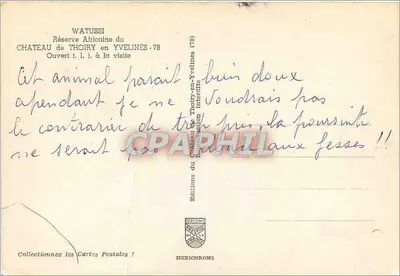 WATUSSI
Réserve Africaine du
CHATEAU de THOIRY en YVELINES - 78
Ouvert t. l. j. à la visite
Cet animal parait bien doux
cependant je ne voudrais pas
le contrarier de trop près, la poursuite
ne serait pas aux fesses !!
Editions du Château de Thoiry-en-Yvelines (78)
Reproduction interdite
CPARAMA.COM
Collectionnez les Cartes Postales !
MEXICHROME